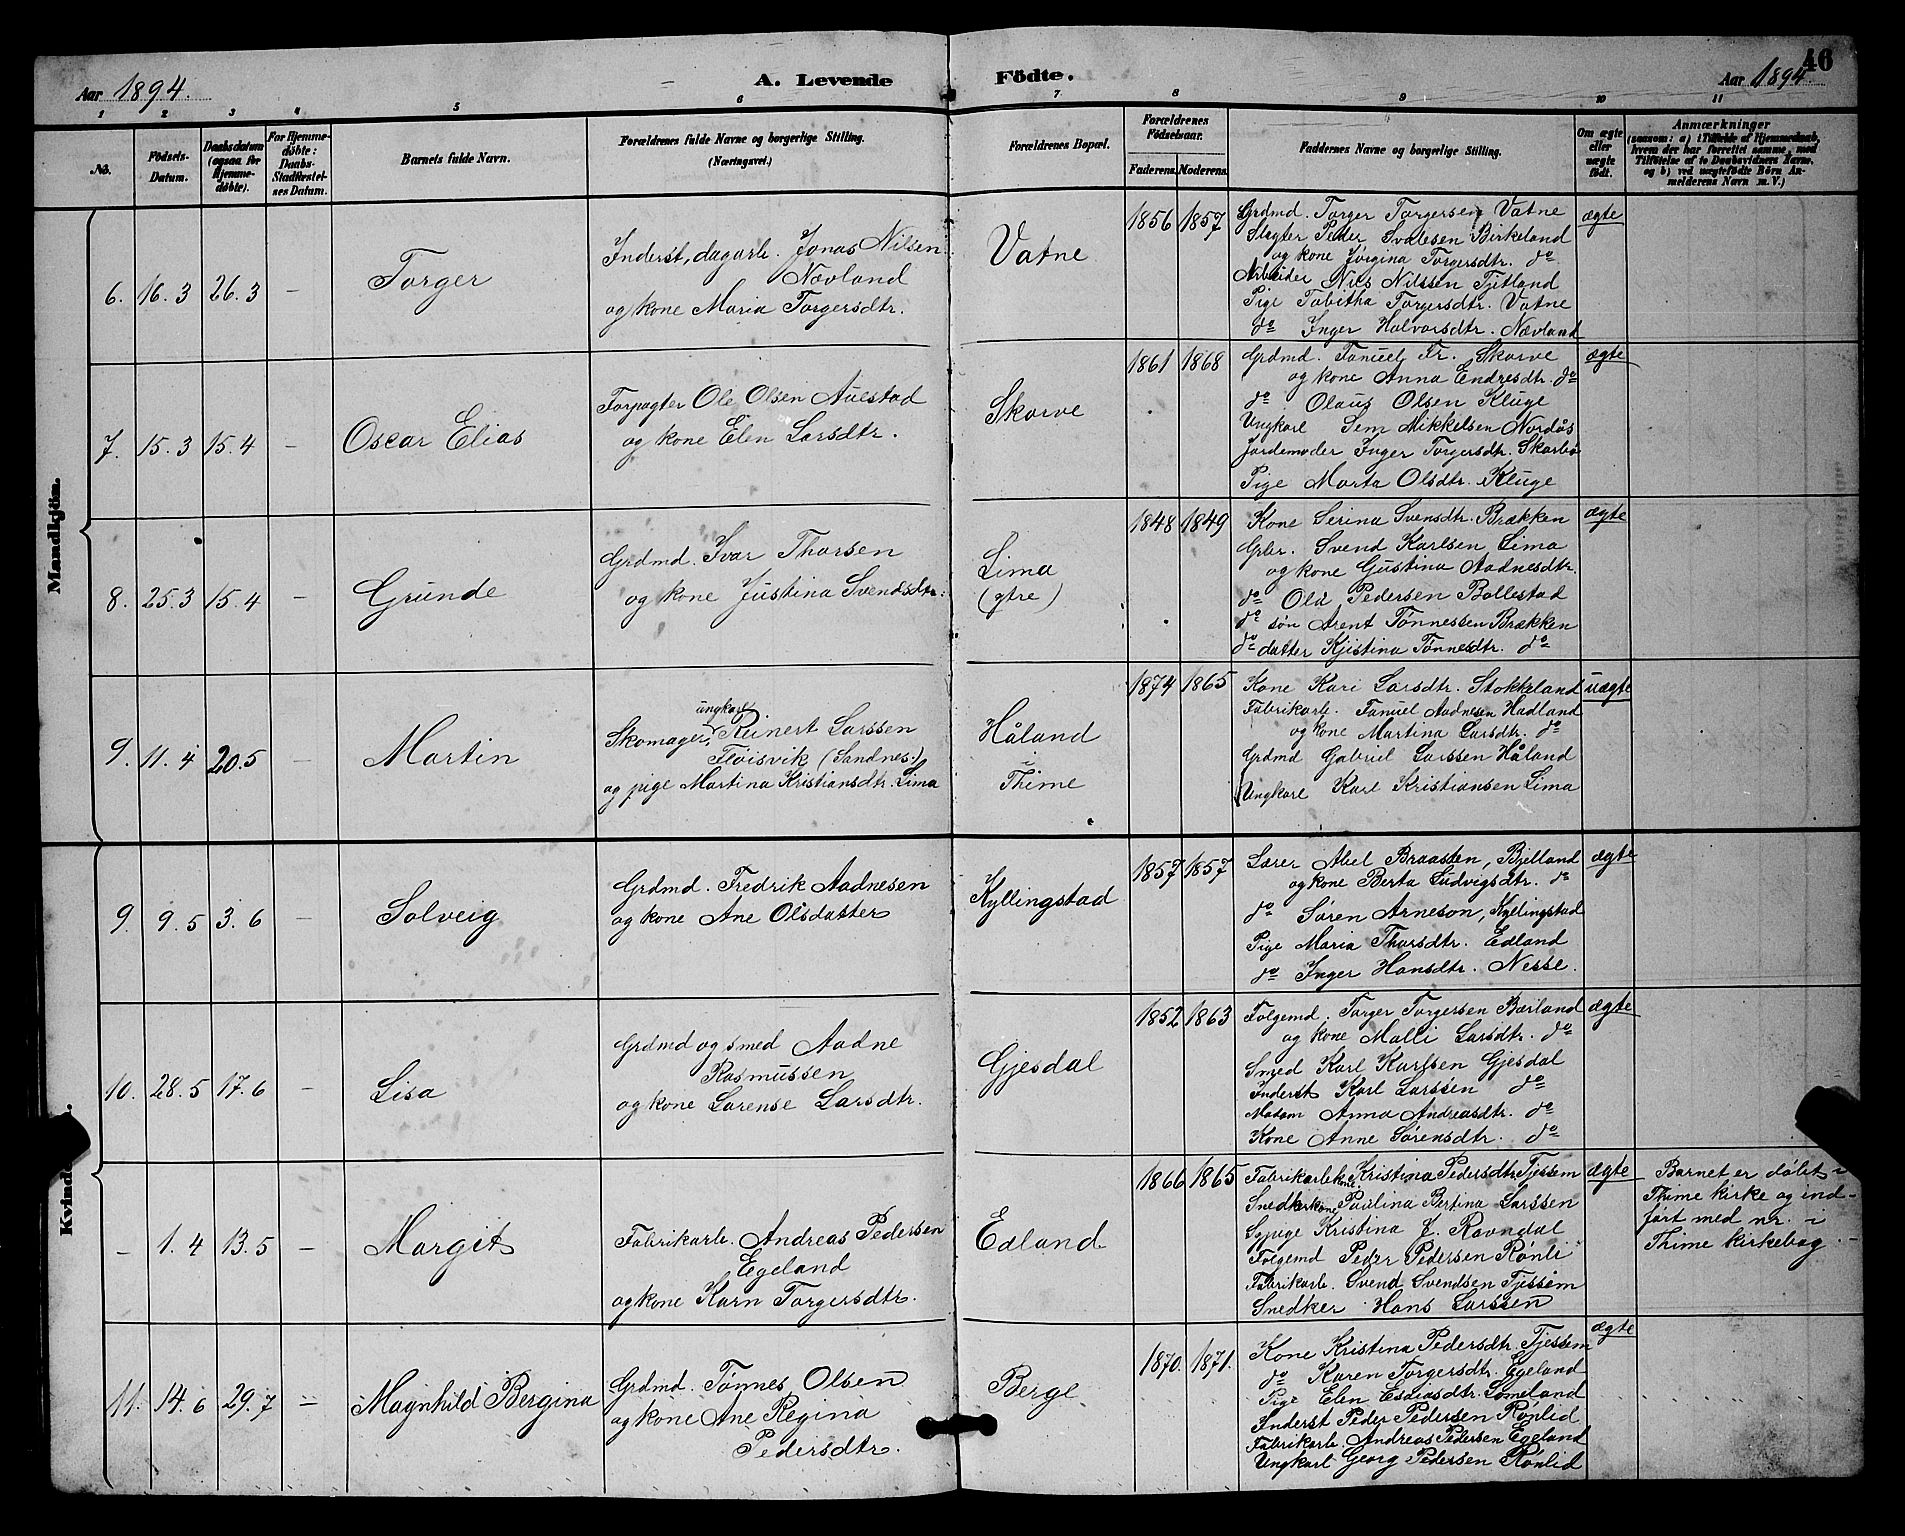 46
Aar 1894. A. Levende Fødte. Aar 1894
1 2 3 4 5 6 7 8 9 10 11
No.
Fødsels-Datum.
Daabsdatum (ogsaa for Hjemmedøbte).
For Hjemmedøbte: Daabs-Stadfæstelses Datum.
Barnets fulde Navn.
Forældrenes fulde Navne og borgerlige Stilling.
(Næringsvei.)
Forældrenes Bopæl.
Forældrenes Fødselsaar.
Faderens. Moderens.
Faddernes Navne og borgerlige Stilling.
Om ægte eller uægte født.
Anmærkninger
(saasom: a) i Tilfælde af Hjemmedaab, hvem der har forrettet samme, med Tilføielse af to Daabsvidners Navne, og b) ved uægtefødte Børn Anmelderens Navn m. V.)
Mandkjøn.
6. 16.3 26.3 – Torger
Inderst, dagarb. Jonas Nilsen
Nævland
og kone Maria Torgersdtr.
Vatne
1856 1857
Grdmd. Torger Torgersen Vatne
Slagter Peder Svalesen Birkeland
og kone Jorgina Torgersdtr. do
Arbeider Nils Nilssen Tjetland
Pige Tabitha Torgersdtr. Vatne
do Inger Halvorsdtr. Nævland
ægte
7. 15.3 15.4 – Oscar Elias
Forpagter Ole Olsen Auestad
og kone Elen Larsdtr.
Skorve
1861 1868
Grdmd. Tanuel Fr. Skorve
og kone Anna Endresdtr. do
do Olaus Olsen Kluge
Ungkarl Sem Mikkelsen Nordås
Jordemoder Inger Torgersdtr. Skarbø
Pige Marta Olsdtr. Kluge
ægte
8. 25.3 15.4 – Grunde
Grdmd. Ivar Thorsen
og kone Justina Svendsdtr.
Lima
(ytre)
1848 1849
Kone Serina Svensdtr. Brækken
Gpbr. Svend Karlsen Lima
og kone Gustina Aadnesdtr.
do Ola Pedersen Bollestad
do søn Arent Tønnessen Brækken
do datter Kjistina Tønnesdtr. do
ægte
9. 11.4 20.5 Martin
ungkarl
Skomager, Reinert Larssen
Fløisvik (Sandnes)
og pige Martina Kristiansdtr. Lima
Håland
i
Thime
1874 1865
Kone Kari Larsdtr. Stokkeland
Fabrikarb. Tanuel Aadnesen Hadland
og kone Martina Larsdtr. do
Grdmd Gabriel Larssen Håland
Ungkarl Karl Kristiansen Lima
uægte
Kvinde
9. 9.5 3.6 – Solveig
Grdmd. Fredrik Aadnesen
og kone Ane Olsdatter
Kyllingstad
1857 1857
Lærer Abel Braasten, Bjelland
og kone Berta Ludvigsdtr. do
do Søren Arneson, Kyllingstad
Pige Maria Thorsdtr. Edland
do Inger Hansdtr. Nesse.
ægte
10. 28.5 17.6 – Lisa
Grdmd og smed Aadne
Rasmussen
og kone Larense Larsdtr.
Gjesdal
1852 1863
Folgemd. Torger Torgersen Bærland
og kone Malli Larsdtr. do
Smed Karl Karlsen Gjesdal
Inderst Karl Larssen do
Madam Anna Andreasdtr. do
Kone Anne Sørensdtr. do
ægte
– 1.4 13.5 – Margit
Fabrikarb. Andreas Pedersen
Egeland
og kone Karn Torgersdtr.
Edland
1866 1865
Fabrikarb.kone Kristina Pedersdtr. Tjessem
Snedkerkone Paulina Bertina Larssen
Sypige Kristina J. Ravndal
Folgemd Peder Pedersen Rønli
Fabrikarb. Svend Svendsen Tjessem
Snedker Hans Larssen
ægte
Barnet er døbt i
Thime kirke og ind-
ført med nr. i
Thime kirkebog.
11. 14.6 29.7 = Magnhild Bergina
Grdmd. Tønnes Olsen
og kone Ane Regina
Pedersdtr.
Berge
1870. 1871.
Kone Kristina Pedersdtr. Tjessem
do Karen Torgersdtr. Egeland
Pige Elen Esaiasdtr. Lomeland
Inderst Peder Pedersen Rønlid
Fabrikarb. Andreas Pedersen Egeland
Ungkarl Georg Pedersen Rønlid
ægte